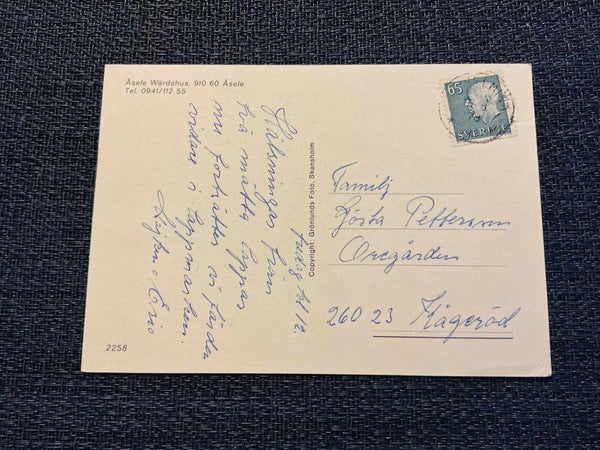 Åsele Wärdshus, 910 60 Åsele
Tel. 0941/112 55
65
SVERIGE
fredag kl 12.
Hälsningar från
två mätta lappar
nu fortsätter vi färden
vidare i Lappmarken.
Copyright: Grönlunds Foto, Skansholm
Familj
Gösta Pettersson
Oregården
260 23 Kågeröd
2258